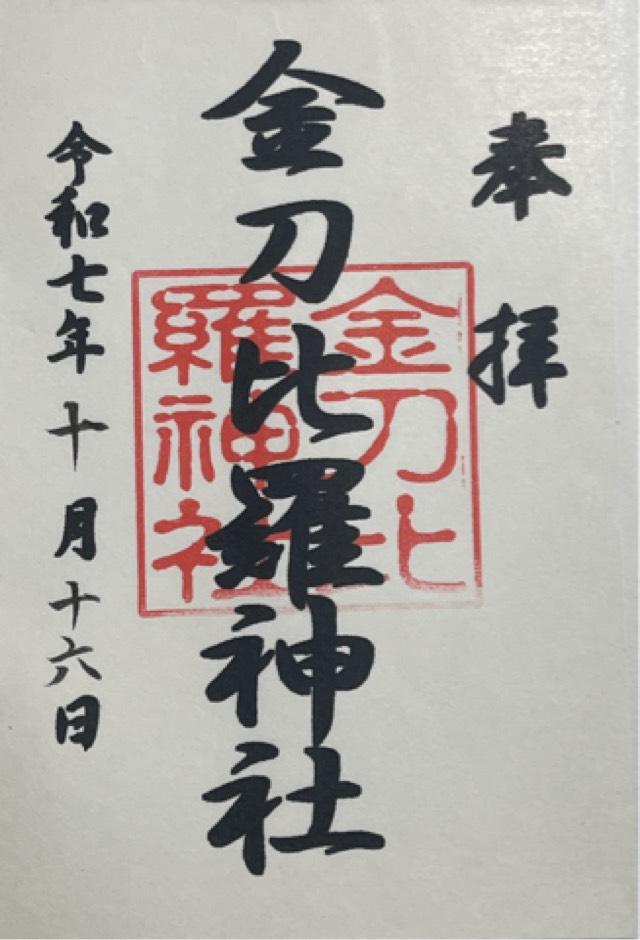 奉拝
金刀比羅神社
金刀比
羅神社
令和七年十月十六日